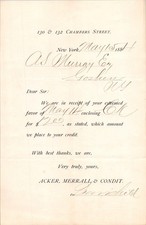 130 & 132 CHAMBERS STREET.
New York, May 18 188
A. S. Murray Esq
Goshen
N.Y.
Dear Sir:
We are in receipt of your esteemed
favor of May 17 enclosing
$ as stated, which amount
we place to your credit.
With best thanks, we are,
Very truly, yours,
ACKER, MERRALL & CONDIT.